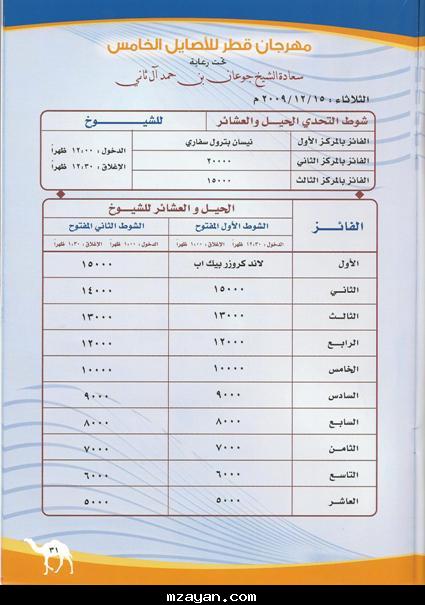 مهرجان قطر للأصايل الخامس
تحت رعاية
سعادة الشيخ جوعان بن حمد آل ثاني
الثلاثاء : ٢٠٠٩/١٢/١٥ م
شوط التحدي الحيل والعشائر للشيوخ
الفائز بالمركز الأول نيسان بترول سفاري الدخول : ١٢:٠٠ ظهراً
الفائز بالمركز الثاني ٢٠٠٠٠ الإغلاق : ١٢:٣٠ ظهراً
الفائز بالمركز الثالث ١٥٠٠٠
الحيل و العشائر للشيوخ
الفائز الشوط الأول المفتوح الشوط الثاني المفتوح
الدخول : ١٢:٣٠ ظهراً الإغلاق : ١:٠٠ ظهراً الدخول : ١:٠٠ ظهراً الإغلاق : ١:٣٠ ظهراً
الأول لاند كروزر بيك اب ١٥٠٠٠
الثاني ١٥٠٠٠ ١٤٠٠٠
الثالث ١٣٠٠٠ ١٣٠٠٠
الرابع ١٢٠٠٠ ١٢٠٠٠
الخامس ١٠٠٠٠ ١٠٠٠٠
السادس ٩٠٠٠ ٩٠٠٠
السابع ٨٠٠٠ ٨٠٠٠
الثامن ٧٠٠٠ ٧٠٠٠
التاسع ٦٠٠٠ ٦٠٠٠
العاشر ٥٠٠٠ ٥٠٠٠
٣١
mzayan.com